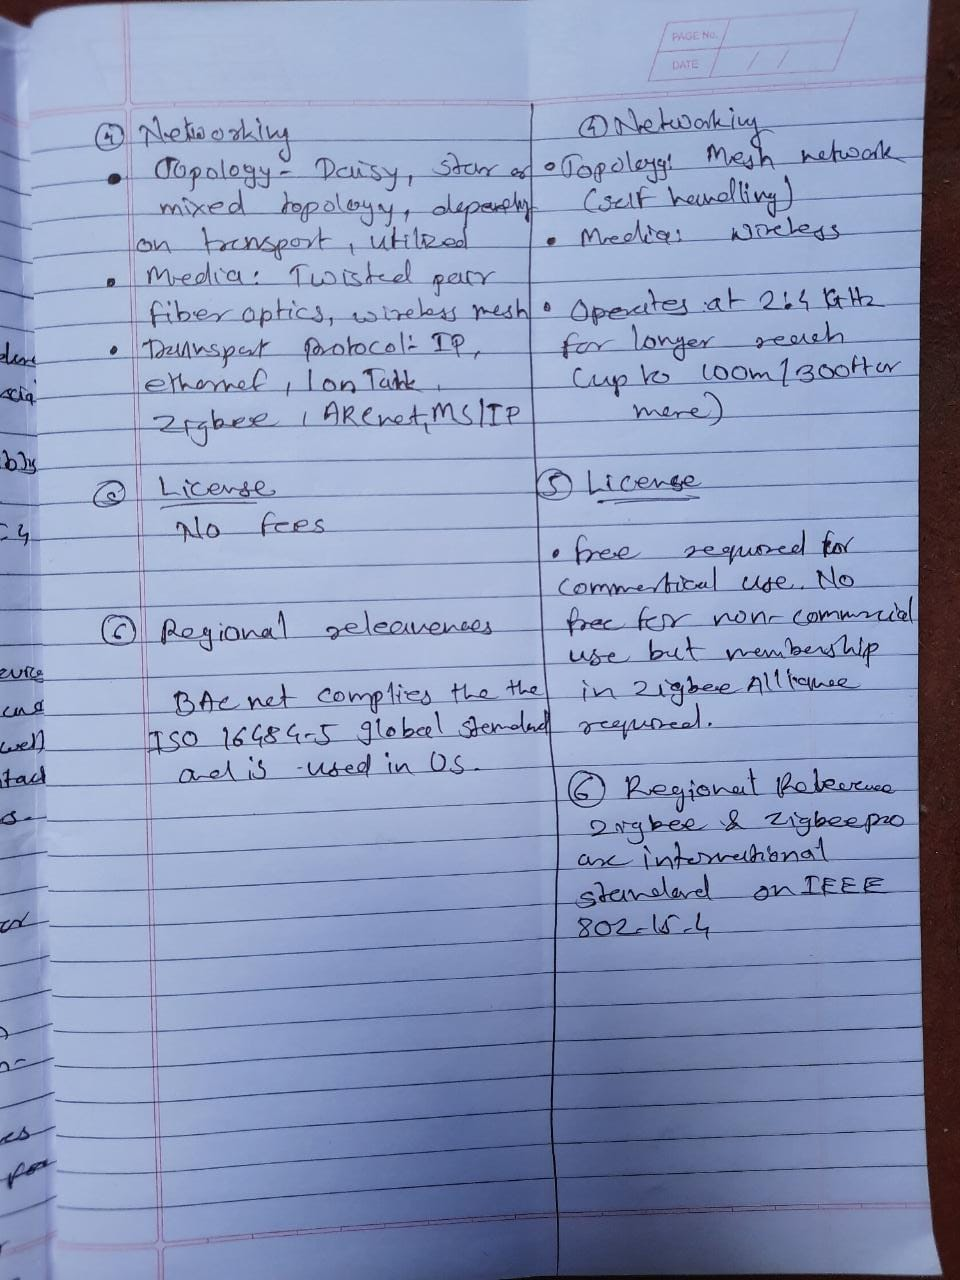 PAGE No.
DATE / /
④ Networking
• Topology - Daisy, star or
mixed topology, dependly
on trnsport, utilized
• Media: Twisted pair
fiber optics, wireless mesh
• Transport protocol:- IP,
ethernet, Ion Talk,
zigbee, ARCnet, MS/IP
License
No fees
⑥ Regional releavences
BAC net complies the the
ISO 16484-5 global standard
and is used in US.
④ Networking
• Topology: Mesh network
(self handling)
• Media: wireless
• Operates at 2.4 GHz
for longer reach
(up to 100m/300ft or
more)
⑤ License
• free required for
commertical use. No
free for non-commercial
use but membership
in zigbee Alliance
required.
⑥ Regional
zigbee & zigbeepro
are international
standard on IEEE
802-15-4